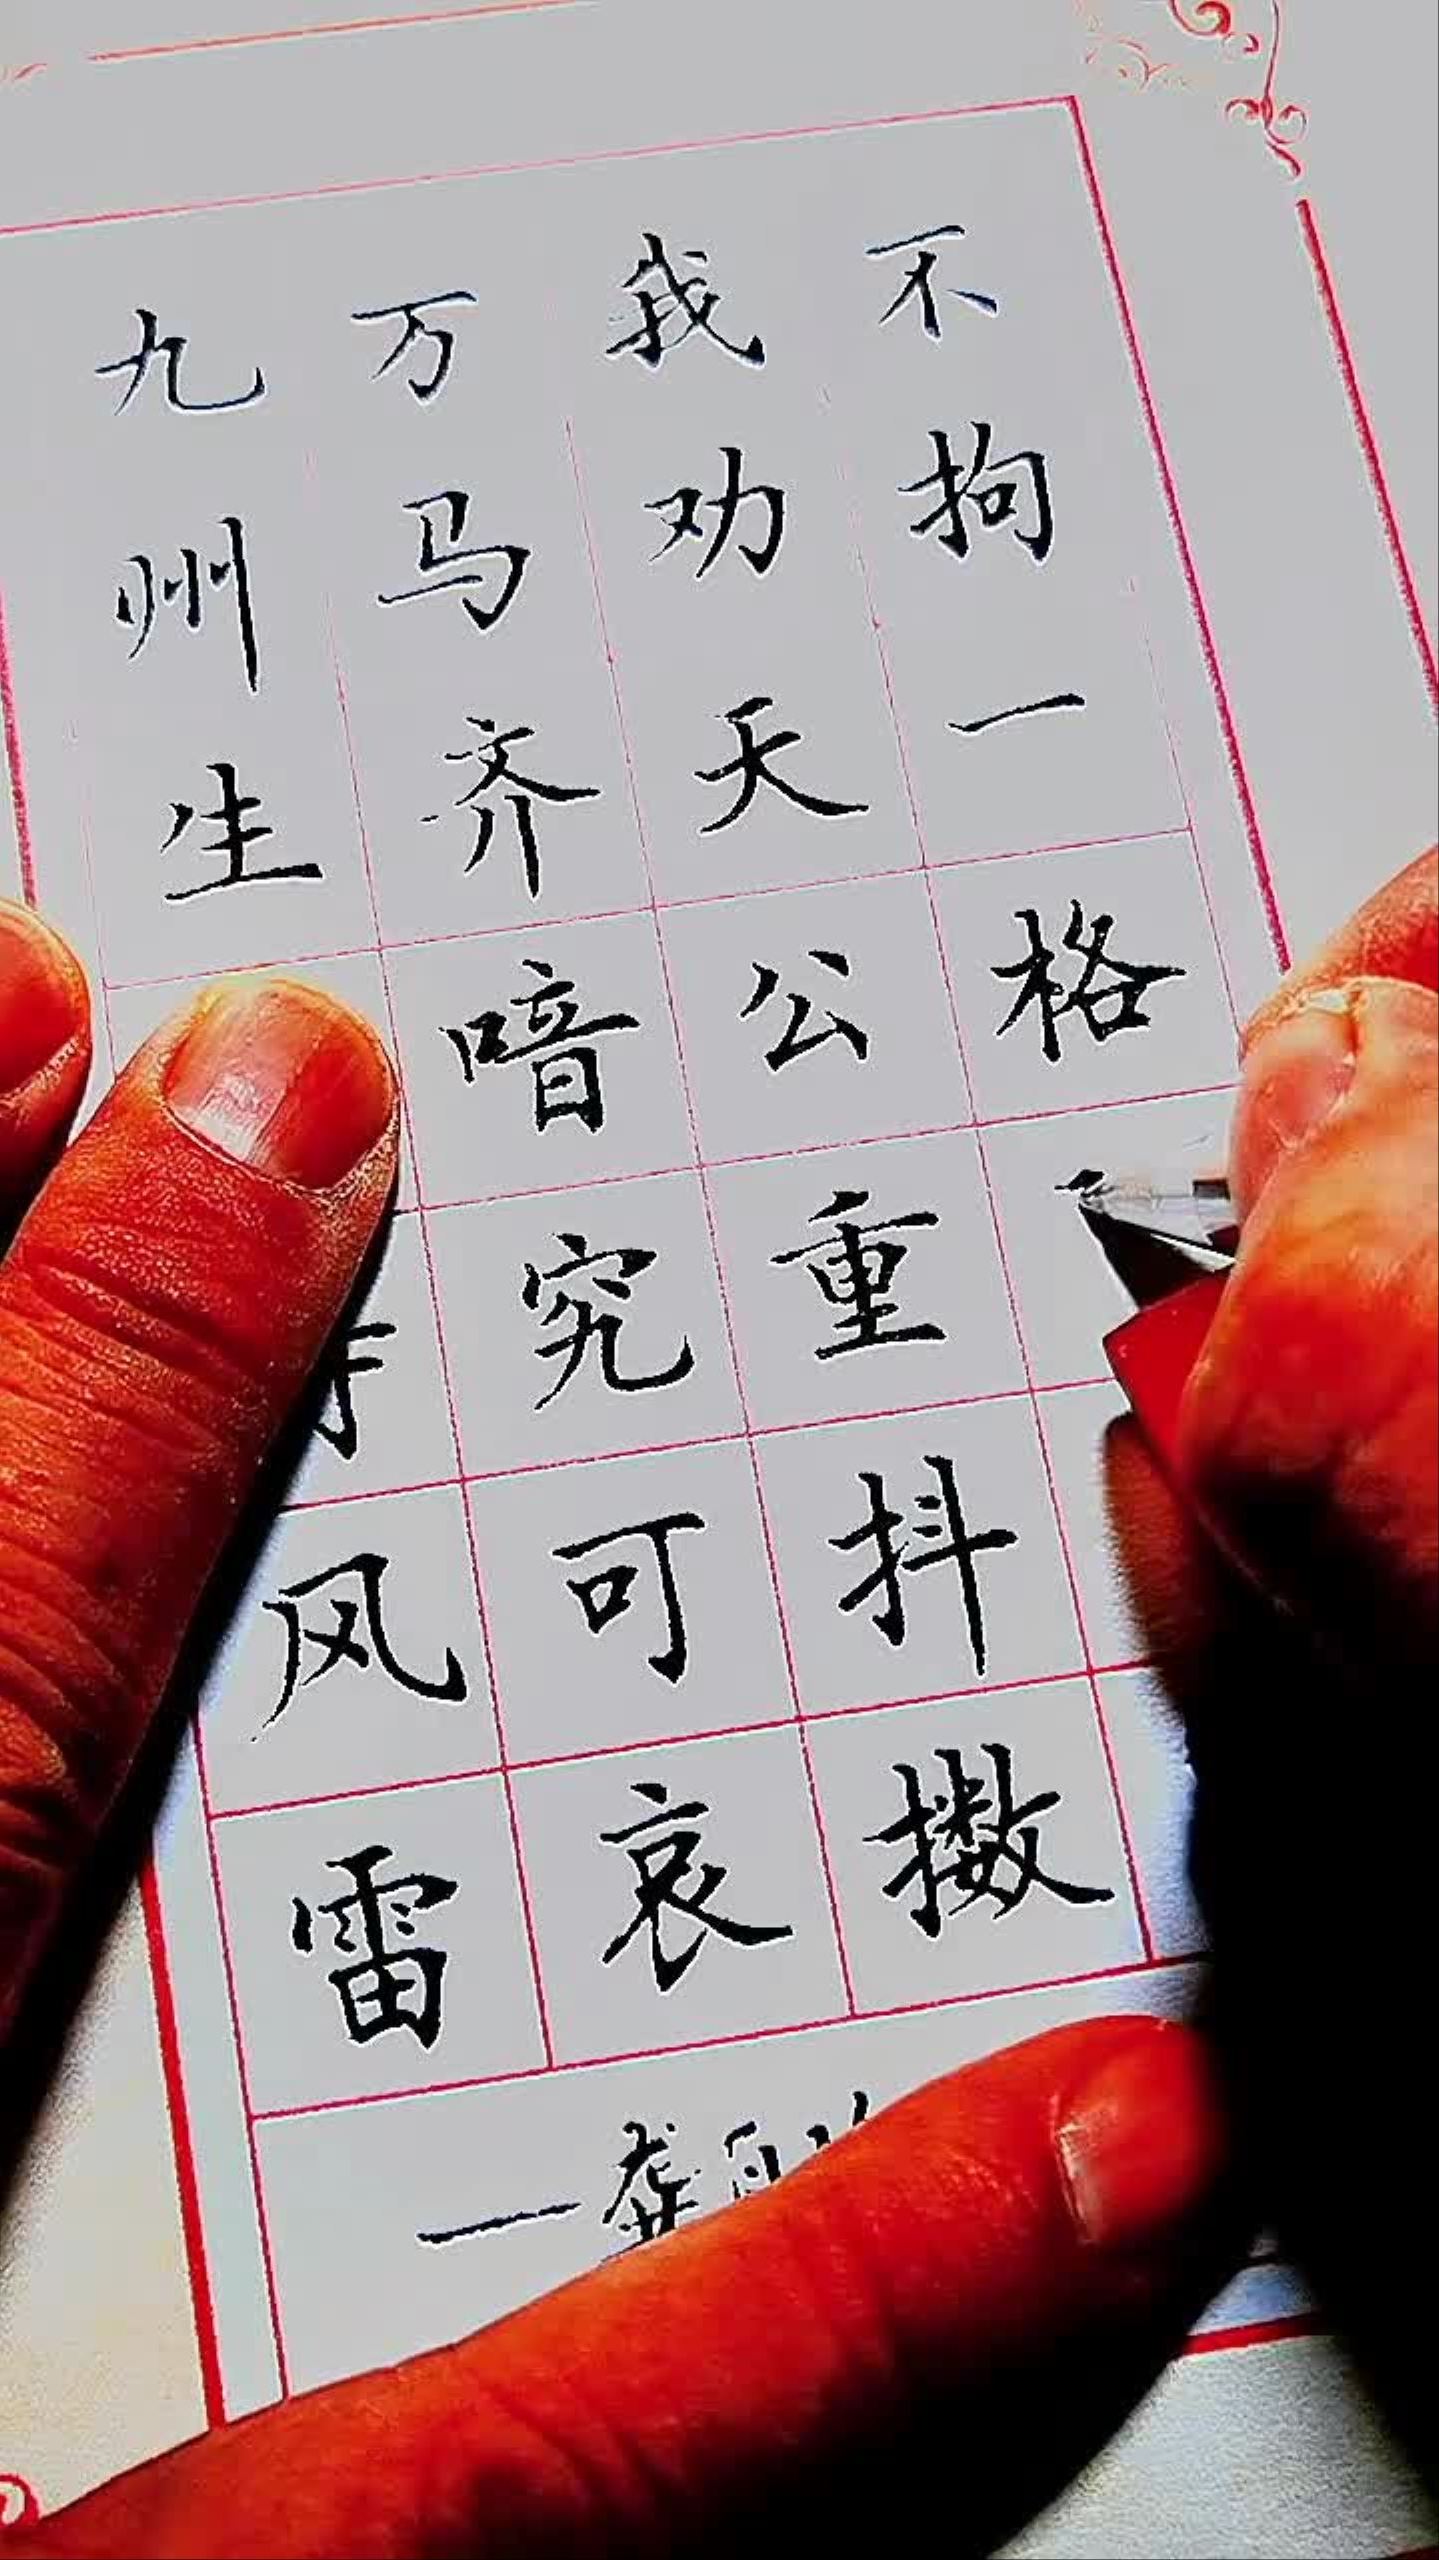 九州生风雷
万马齐喑究可哀
我劝天公重抖擞
不拘一格
—龚